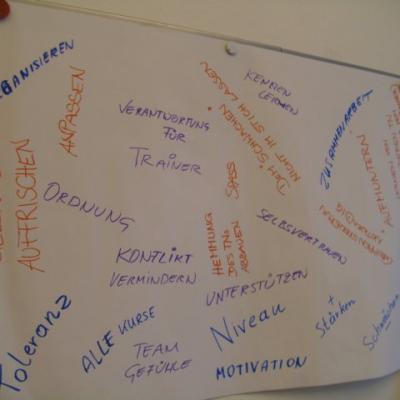 ANPASSEN
KENNEN
LERNEN
VERANTWORTUNG
FÜR
TRAINER
DEN SCHWACHEN
NICHT IM STICH LASSEN
ZUSAMMENARBEIT
AUFFRISCHEN
SPASS
AUFMUNTERN
ORDNUNG
HEMMUNG
DES TN.
ABBAUEN
SELBSVERTRAUEN
KONFLIKT
VERMINDERN
UNTERSTÜTZEN
Toleranz
ALLE KURSE
Niveau
+
Stärken
Schwächen
TEAM
GEFÜHLE
MOTIVATION